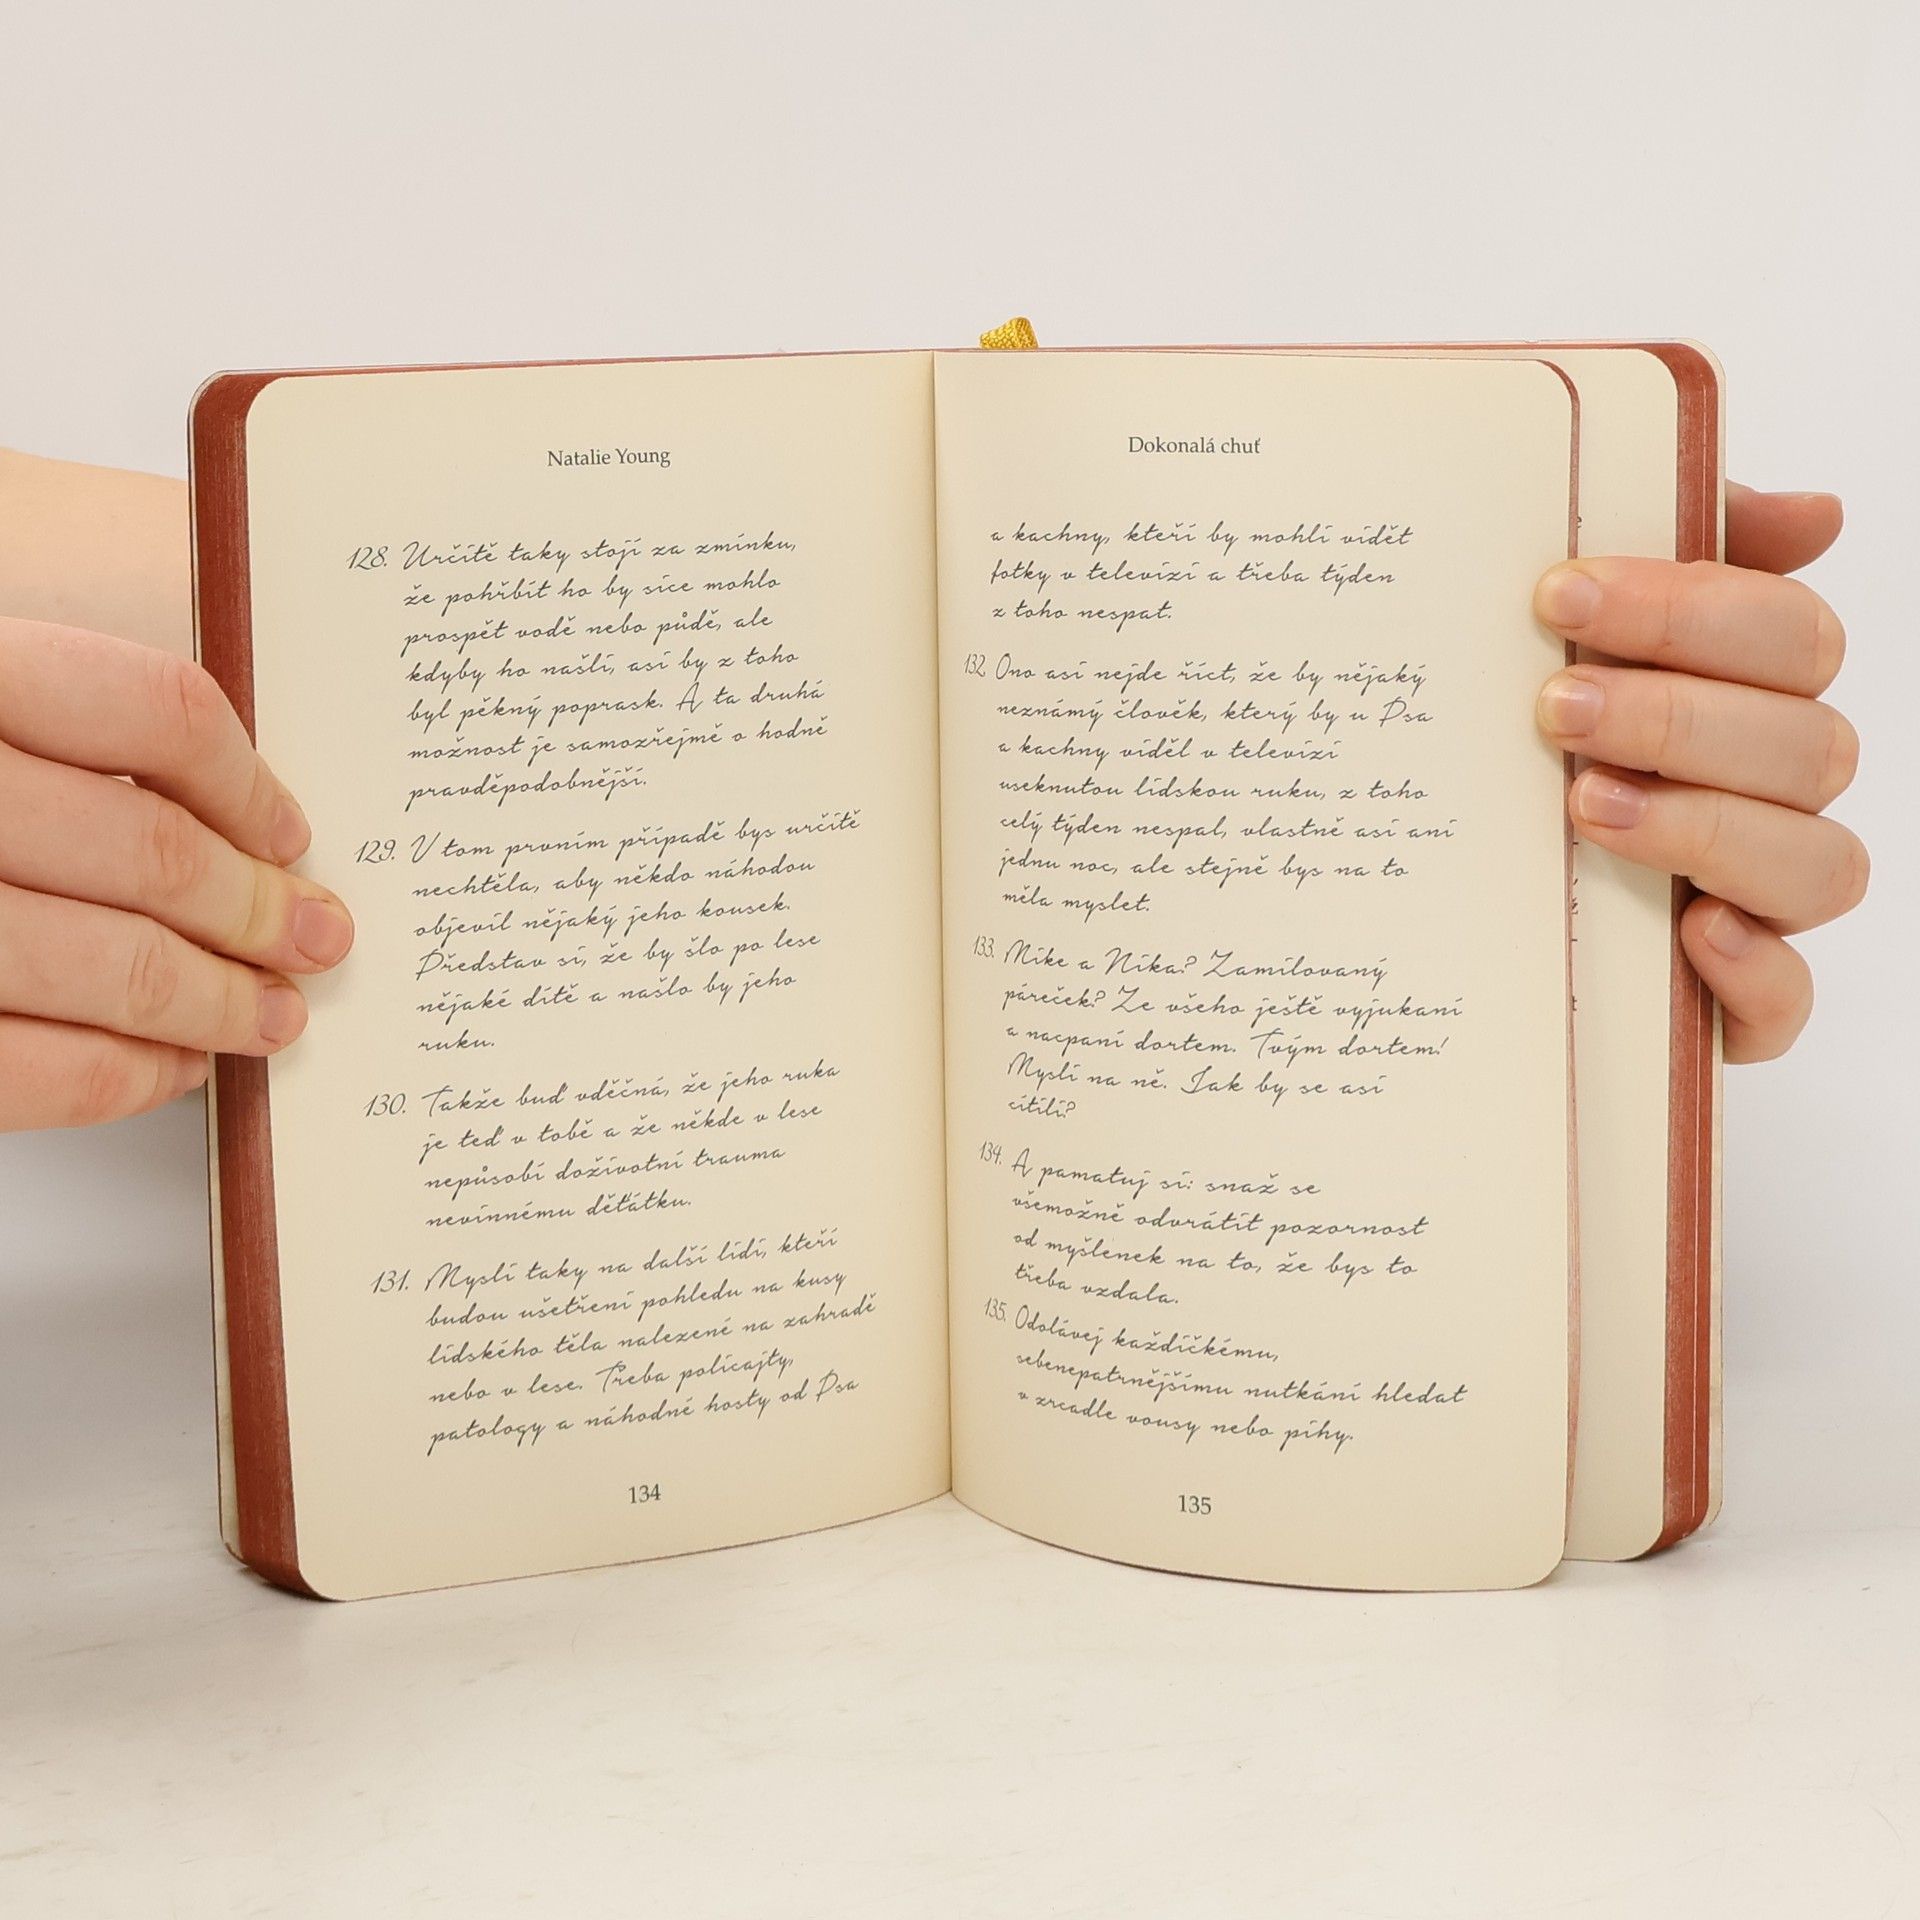 Natalie Young
128. Určitě taky stojí za zmínku,
že pohřbít ho by sice mohlo
prospět vodě nebo půdě, ale
kdyby ho našli, asi by z toho
byl pěkný poprask. A ta druhá
možnost je samozřejmě o hodně
pravděpodobnější.
129. V tom prvním případě bys určitě
nechtěla, aby někdo náhodou
objevil nějaký jeho kousek.
Představ si, že by šlo po lese
nějaké dítě a našlo by jeho
ruku.
130. Takže buď vděčná, že jeho ruka
je teď v tobě a že někde v lese
nepůsobí doživotní trauma
nevinnému děťátku.
131. Mysli taky na další lidi, kteří
budou ušetřeni pohledu na kusy
lidského těla nalezené na zahradě
nebo v lese. Třeba policajty,
patology a náhodné hosty od Psa
134
Dokonalá chuť
a kachny, kteří by mohli vidět
fotky v televizi a třeba týden
z toho nespat.
132. Ono asi nejde říct, že by nějaký
neznámý člověk, který by u Psa
a kachny viděl v televizi
useknutou lidskou ruku, z toho
celý týden nespal, vlastně asi ani
jednu noc, ale stejně bys na to
měla myslet.
133. Mike a Nika? Zamilovaný
páreček? Ze všeho ještě vyjukaní
a nacpaní dortem. Tvým dortem!
Mysli na ně. Jak by se asi
cítili?
134. A pamatuj si: snaž se
všemožně odvrátit pozornost
od myšlenek na to, že bys to
třeba vzdala.
135. Odolávej každičkému,
sebenepatrnějšímu nutkání hledat
v zrcadle vousy nebo pihy.
135